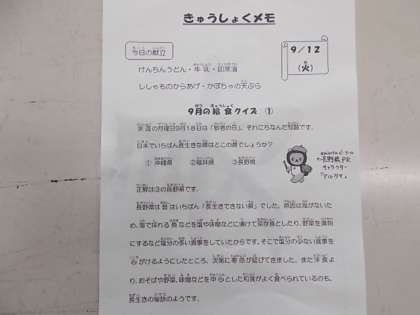 きゅうしょくメモ
9/12
(火)
今日の献立
けんちんうどん・牛乳・
ししゃものからあげ・かぼちゃの天ぷら
9月の給食クイズ ①
来週の月曜日9月18日は「敬老の日」。それにちなんだ問題です。
日本でいちばん長生きな県はどこの県でしょうか?
①沖縄県 ②福井県 ③長野県
長野県PR
キャラクター
「アルクマ」
正解は③の長野県です。
長野県は昔はいちばん「長生きできない県」でした。原因は海がないた
め、海で採れる魚などを塩や味噌などに漬けて保存食としたり、野菜を漬物
にするなど塩分の多い食事をしていたからです。そこで塩分の少ない食事を
心がけるようにしたところ、次第に寿命が延びてきました。また洋食よ
り、おそばや野菜、味噌などを中心とした和食がよく食べられているのも、
長生きの秘訣のようです。